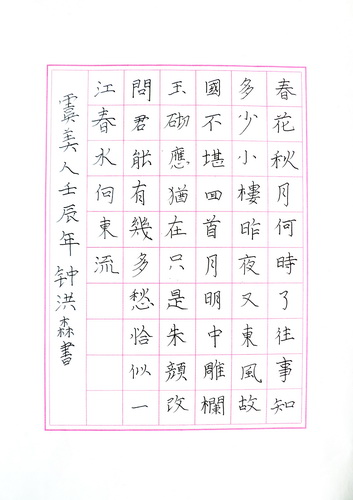 春花秋月何時了往事知
多少小樓昨夜又東風故
國不堪回首月明中雕欄
玉砌應猶在只是朱顏改
問君能有幾多愁恰似一
江春水向東流
虞美人壬辰年钟洪森書